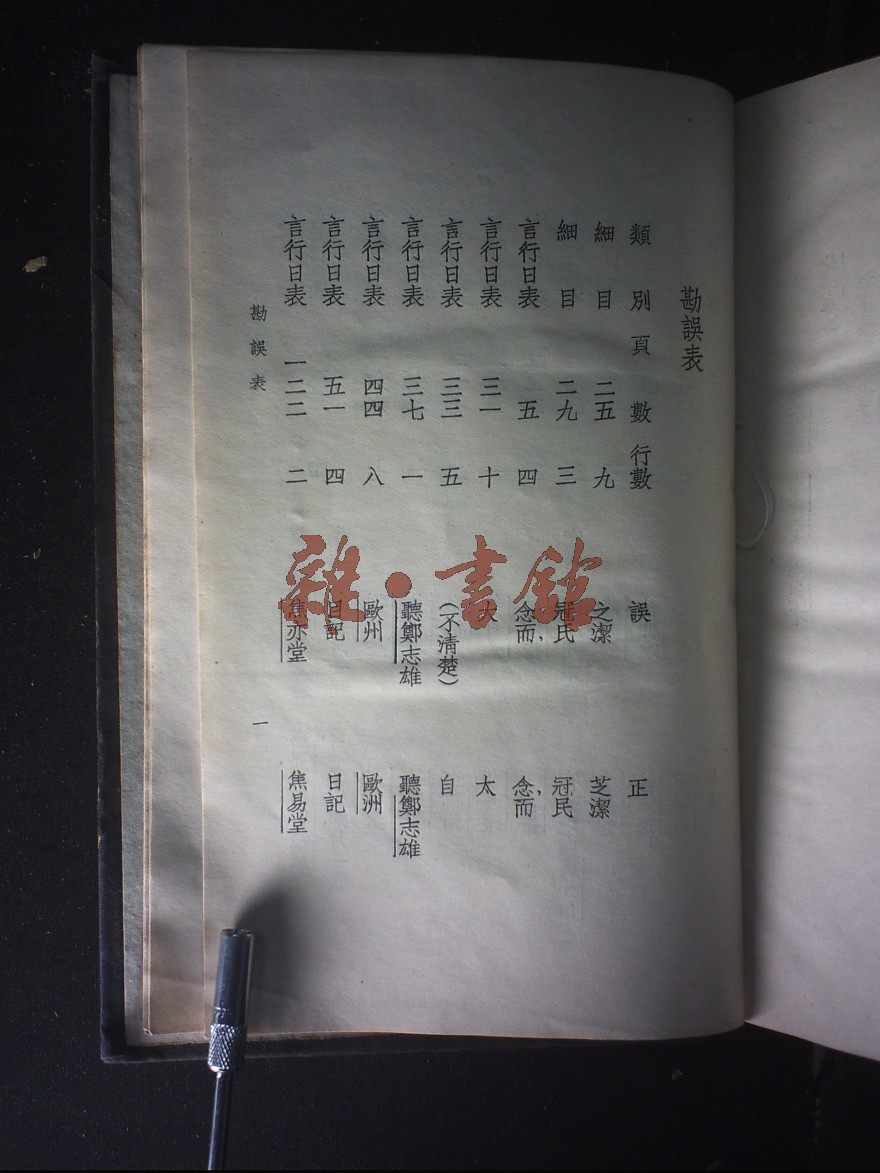 勘誤表
類別 頁數 行數 誤 正
細目 二五 九 之潔 芝潔
細目 二九 三 冠民 冠民,
言行日表 五 四 念而, 念,而
言行日表 三一 十 大 太
言行日表 三三 五 (不清楚) 自
言行日表 三七 一 聽鄭志雄 聽鄭志雄
言行日表 四四 八 歐州 歐洲
言行日表 五一 四 日記 日記
言行日表 一二二 二 焦亦堂 焦易堂
勘誤表 一
雜·書館